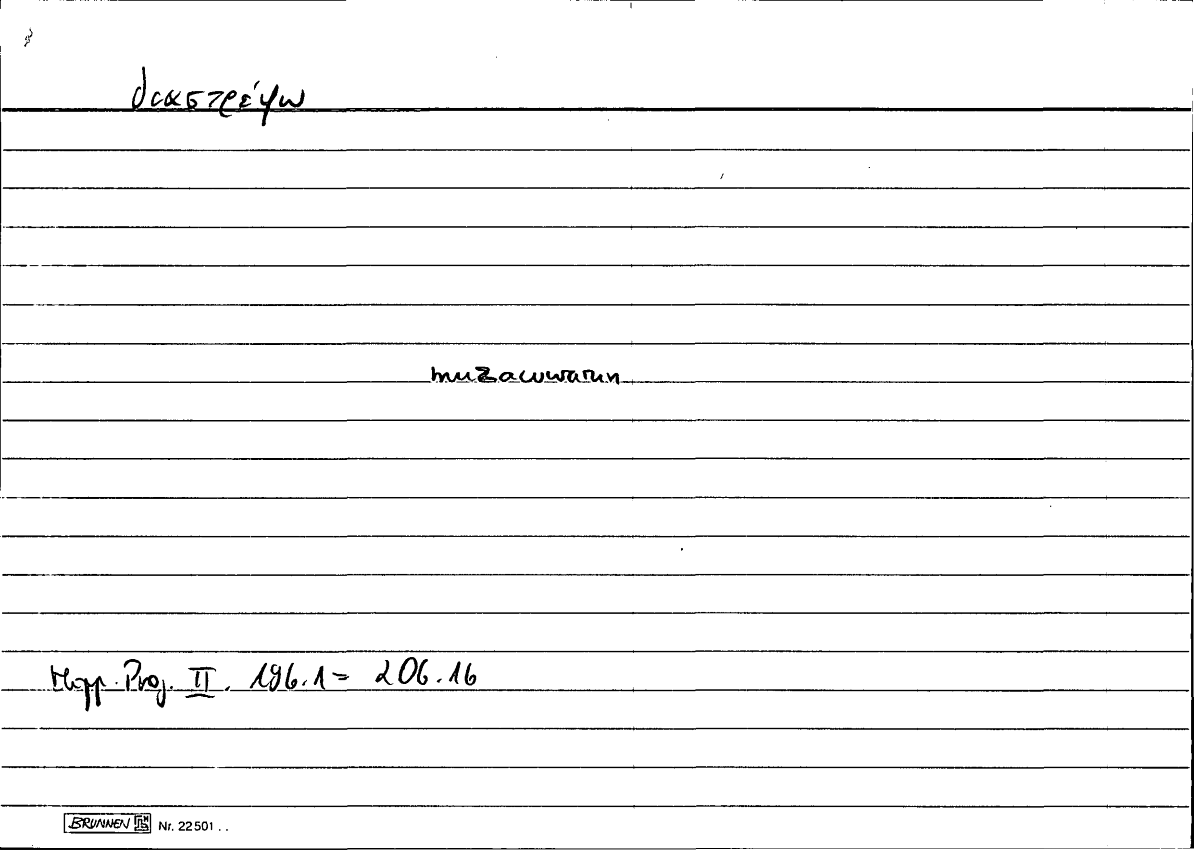 διαστρέψω
muzawwarun
Hipp. Prog. II. 196.1 = 206.16
BRUNNEN Nr. 22501 . .